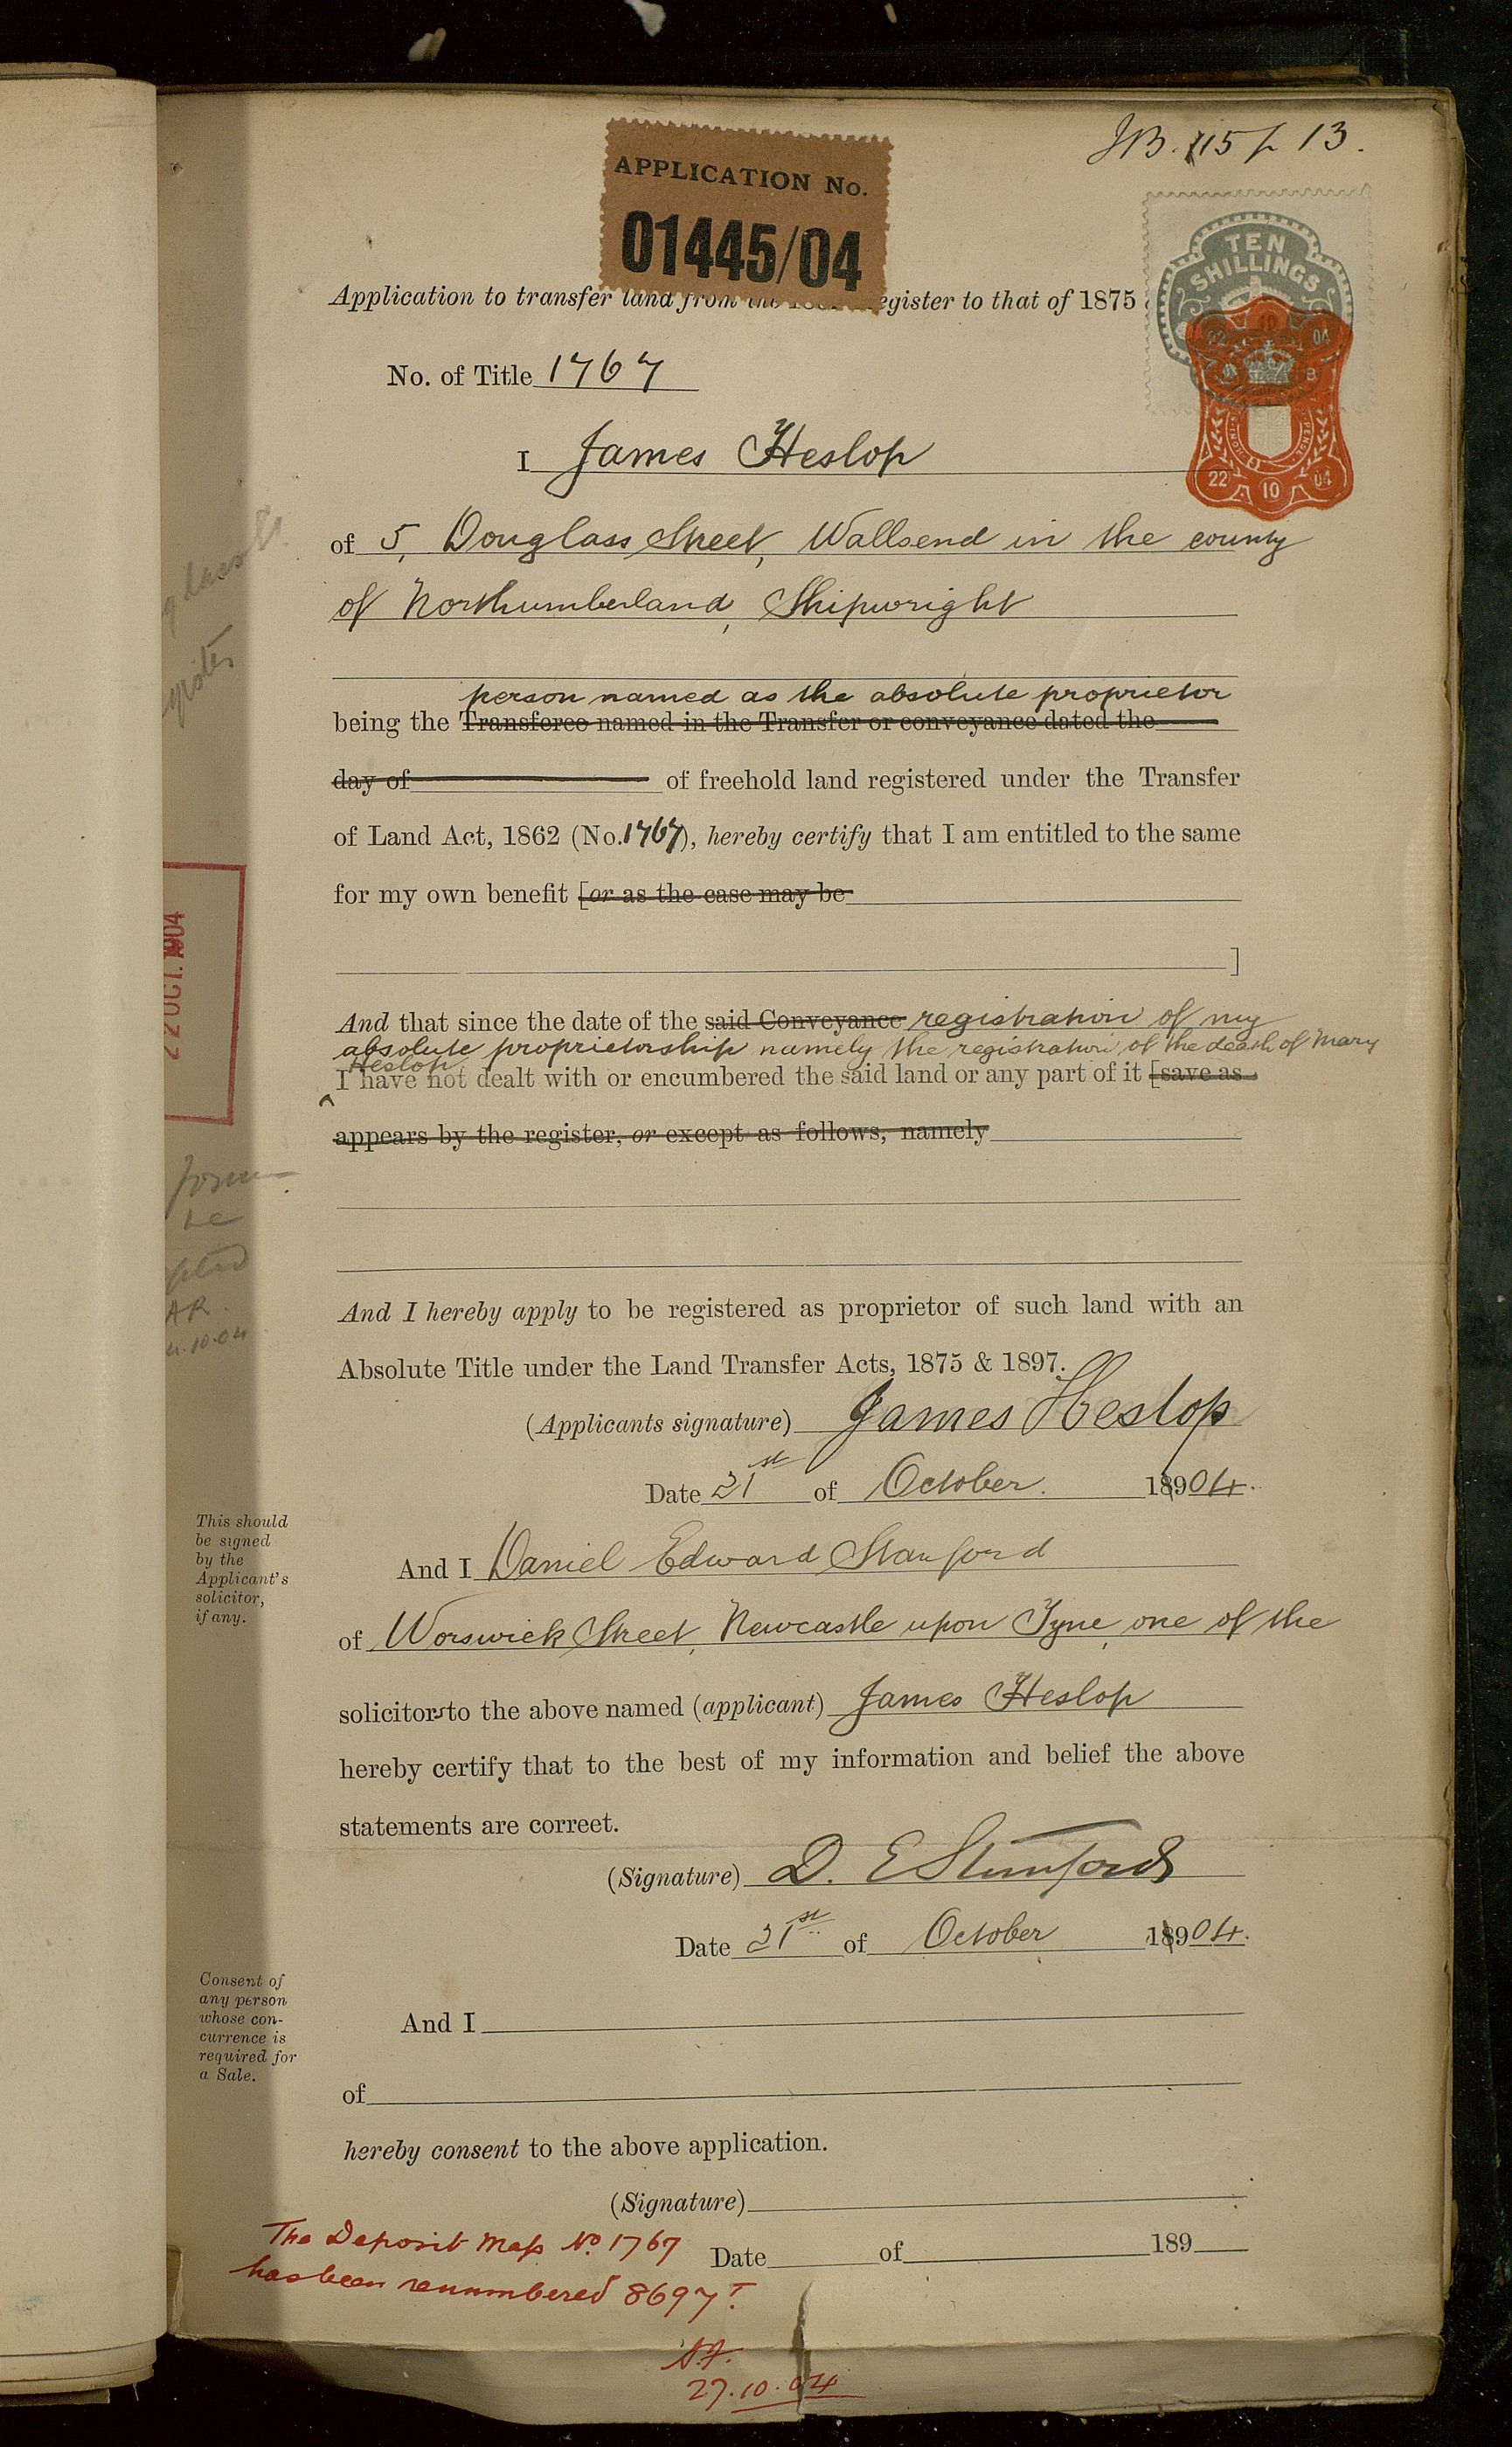 JB. 115 p 13.
APPLICATION No.
01445/04
TEN
SHILLINGS
Application to transfer land from the register to that of 1875
No. of Title 1767
22 10 04
I James Heslop
of 5, Douglass Street, Wallsend in the county
of Northumberland, Shipwright
person named as the absolute proprietor
being the Transferee named in the Transfer or conveyance dated the
day of of freehold land registered under the Transfer
of Land Act, 1862 (No. 1767), hereby certify that I am entitled to the same
for my own benefit [or as the case may be
]
22 OCT. 1904
And that since the date of the said Conveyance registration of my
absolute proprietorship namely the registration of the death of Mary
Heslop,
I have not dealt with or encumbered the said land or any part of it [save as
appears by the register, or except as follows, namely
AR
And I hereby apply to be registered as proprietor of such land with an
Absolute Title under the Land Transfer Acts, 1875 & 1897.
(Applicants signature) James Heslop
Date 21st of October. 18904.
This should
be signed
by the
Applicant's
solicitor,
if any.
And I Daniel Edward Stanford
of Worswick Street, Newcastle upon Tyne, one of the
solicitors to the above named (applicant) James Heslop
hereby certify that to the best of my information and belief the above
statements are correct.
(Signature) D. E Stanford
Date 21st of October 18904.
Consent of
any person
whose con-
currence is
required for
a Sale.
And I
of
hereby consent to the above application.
(Signature)
Date of 189
The Deposit Map No. 1767
has been renumbered 8697T.
27.10.04